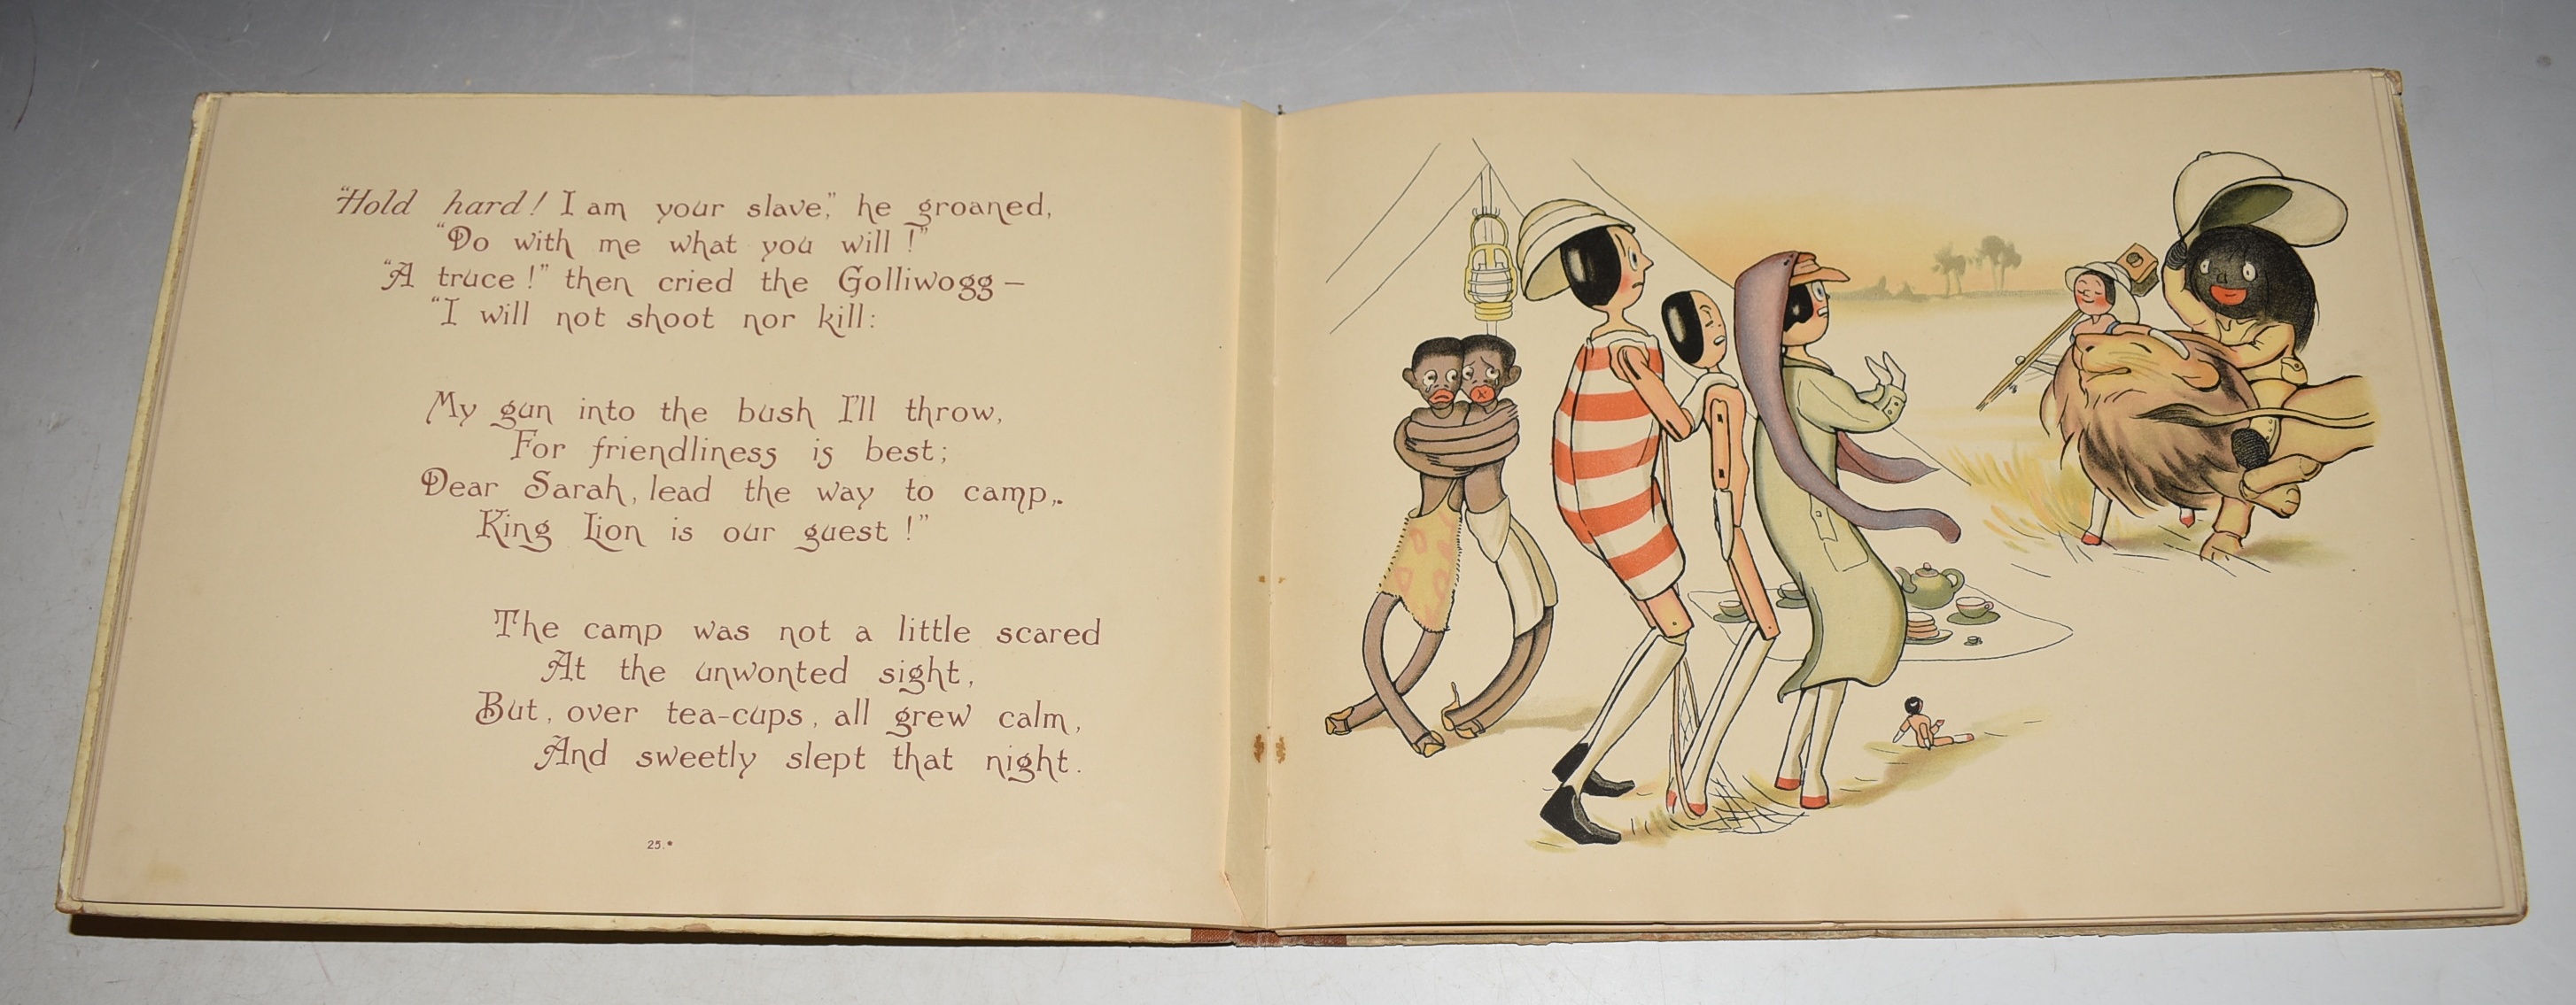 “Hold hard! I am your slave,” he groaned,
“Do with me what you will!”
“A truce!” then cried the Golliwogg—
“I will not shoot nor kill:
My gun into the bush I'll throw,
For friendliness is best;
Dear Sarah, lead the way to camp,.
King Lion is our guest!”
The camp was not a little scared
At the unwonted sight,
But, over tea-cups, all grew calm,
And sweetly slept that night.
25.*